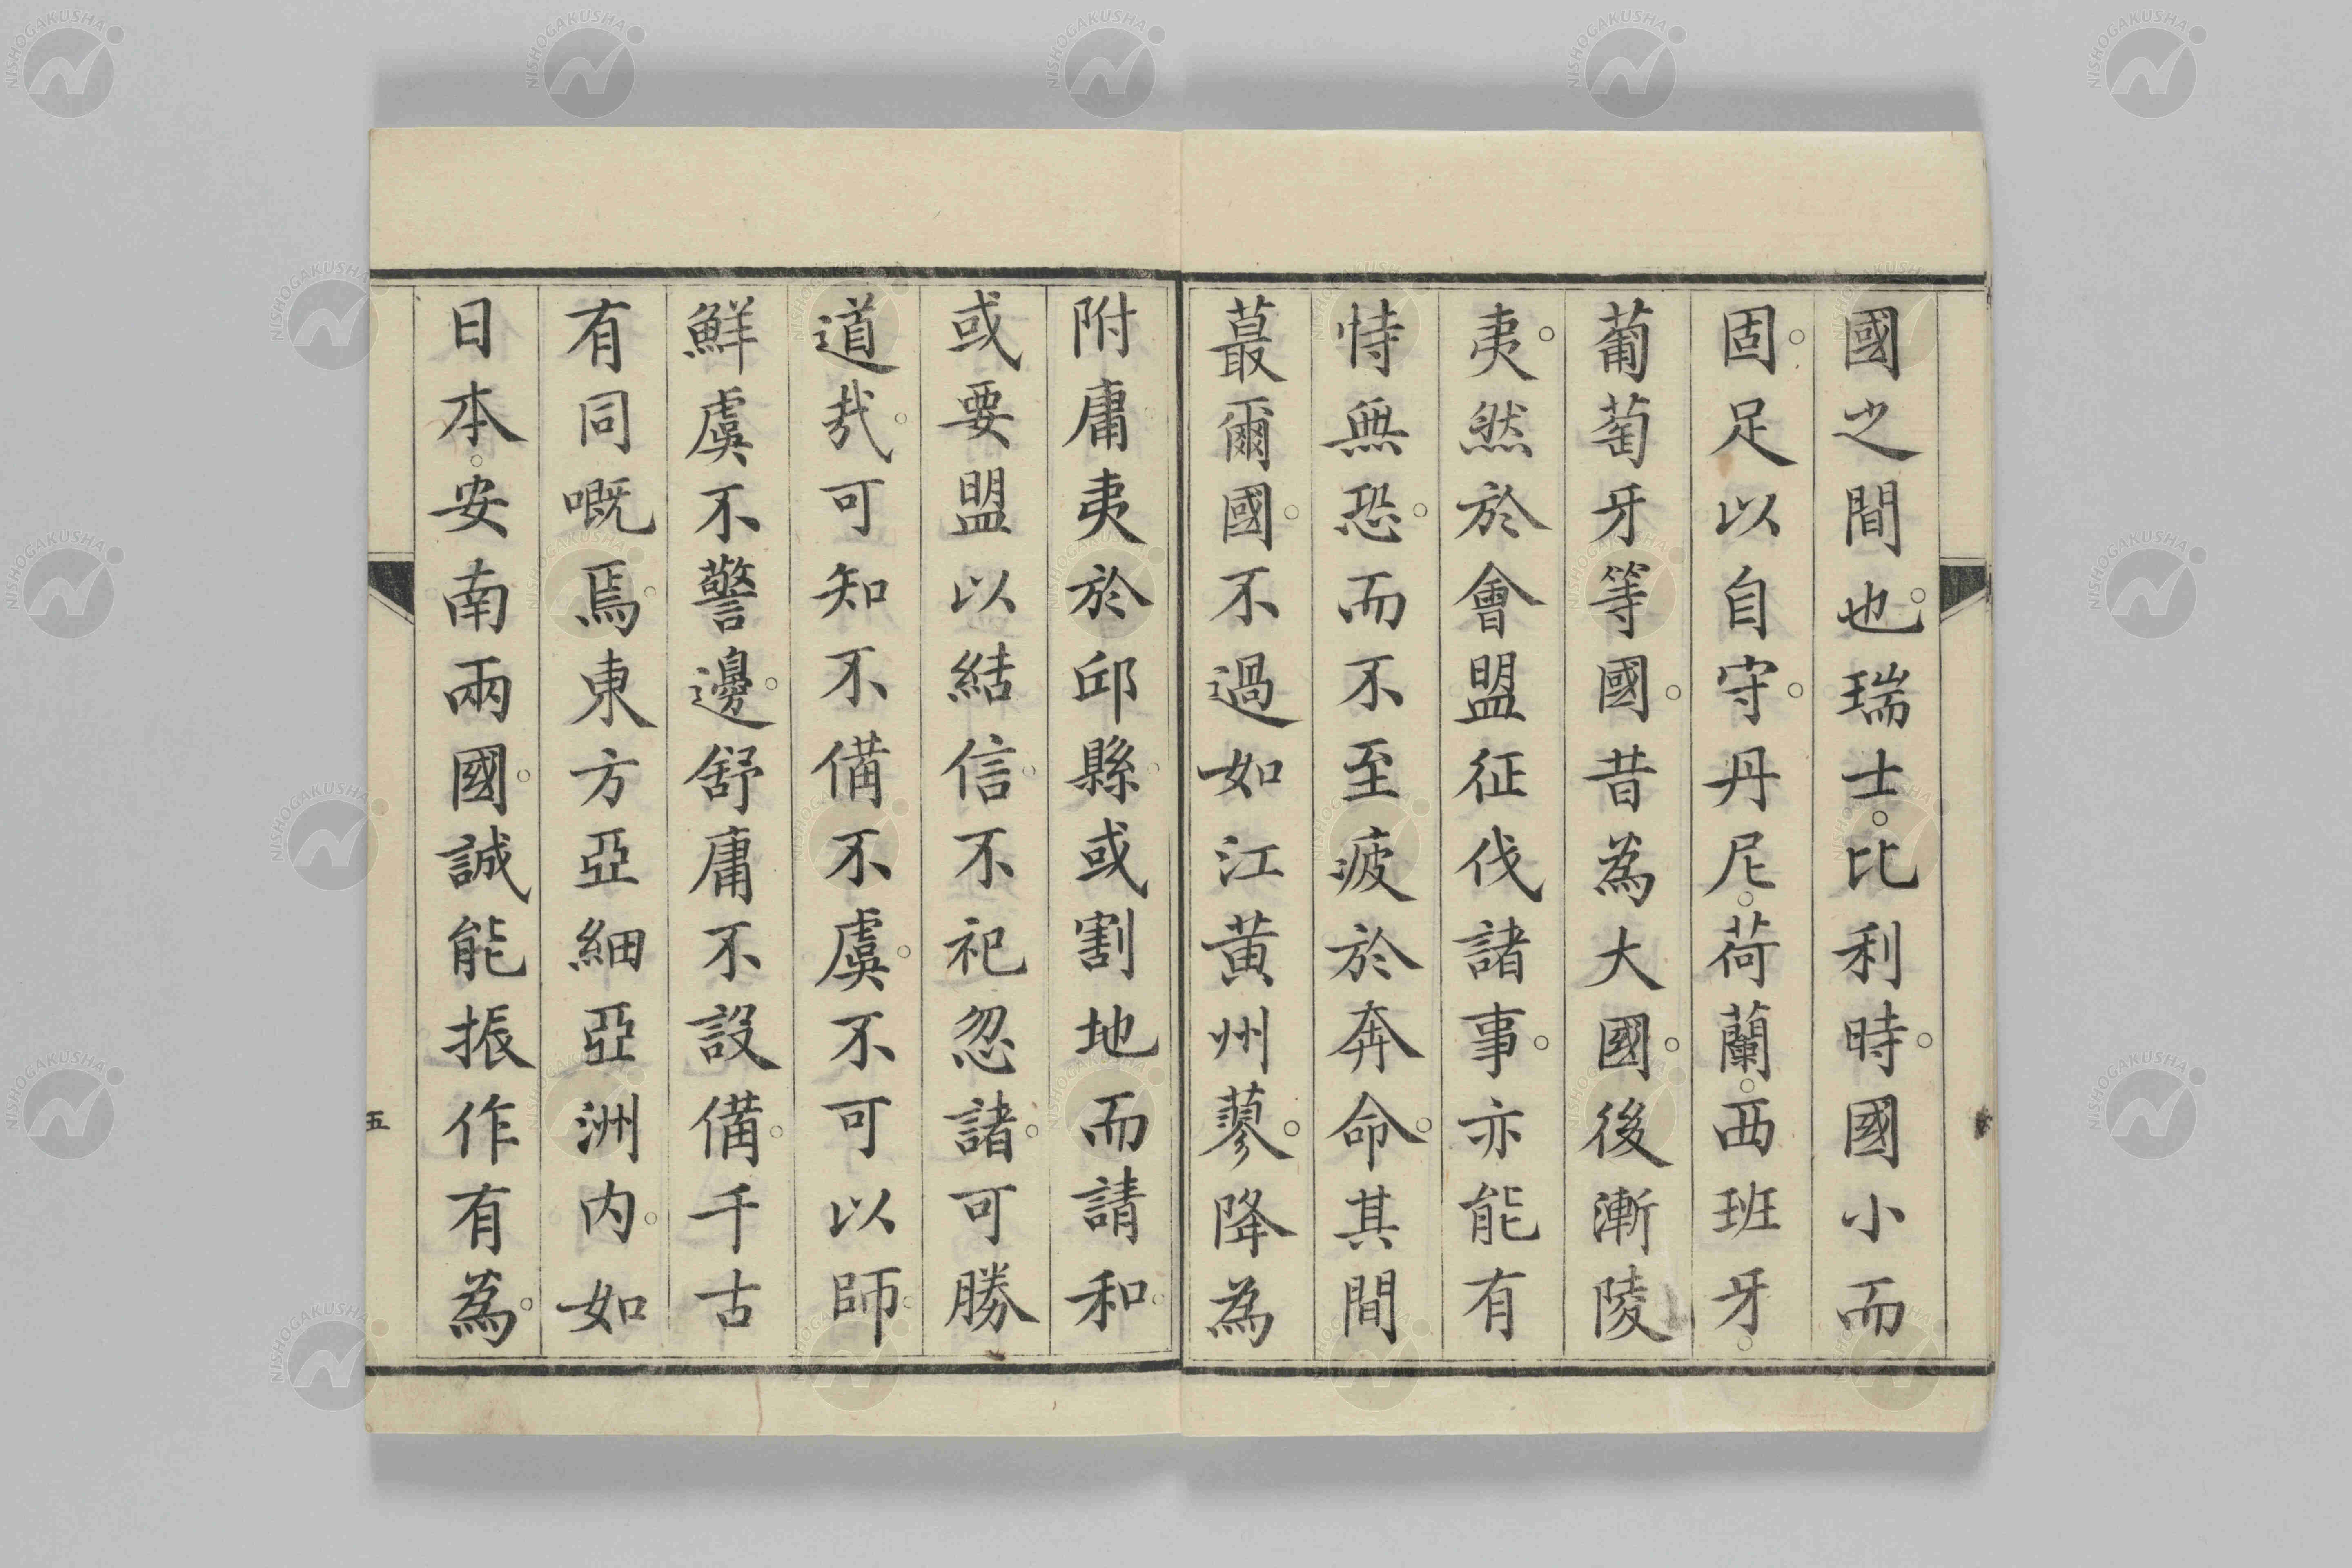 國之間也。瑞士。比利時。國小而
固。足以自守。丹尼。荷蘭。西班牙。
葡萄牙等國。昔為大國。後漸陵
夷。然於會盟征伐諸事。亦能有
恃無恐。而不至疲於奔命。其間
蕞爾國。不過如江黃州蓼。降為
附庸。夷於邱縣。或割地而請和。
或要盟以結信。不祀忽諸。可勝
道哉。可知不備不虞。不可以師。
鮮虞不警邊。舒庸不設備。千古
有同嘅焉。東方亞細亞洲内。如
日本。安南兩國。誠能振作有為。
五
NISHOGAKUSHA